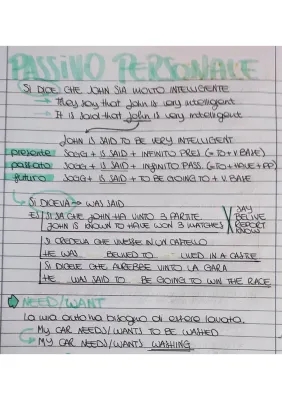 PASSIVO PERSONALE
SI DICE CHE JOHN SIA MOLTO INTELLIGENTE
→ They say that John is very intelligent
→ It is said that John is very intelligent
JOHN IS SAID TO BE VERY INTELLIGENT
presente SOGG + IS SAID + INFINITO PRES (+TO+V.BASE)
passato SOGG + IS SAID + INFINITO PASS. (+TO+HAVE+PP)
futuro SOGG + IS SAID + TO BE GOING TO + V. BASE
SI DICEVA → WAS SAID
ES SI SA CHE JOHN HA VINTO 3 PARTITE
JOHN IS KNOWN TO HAVE WON 3 MATCHES
SAY
BELIVE
REPORT
KNOWS
SI CREDEVA CHE VIVESSE IN UN CASTELLO
HE WAS BELIVED TO LIVED IN A CASTLE
SI DICEVE CHE AVREBBE VINTO LA GARA
HE WAS SAID TO BE GOING TO WIN THE RACE
NEED/WANT
La mia auto ha bisogno di essere lavata.
MY CAR NEEDS/WANTS TO BE WASHED
→ MY CAR NEEDS/WANTS WASHING